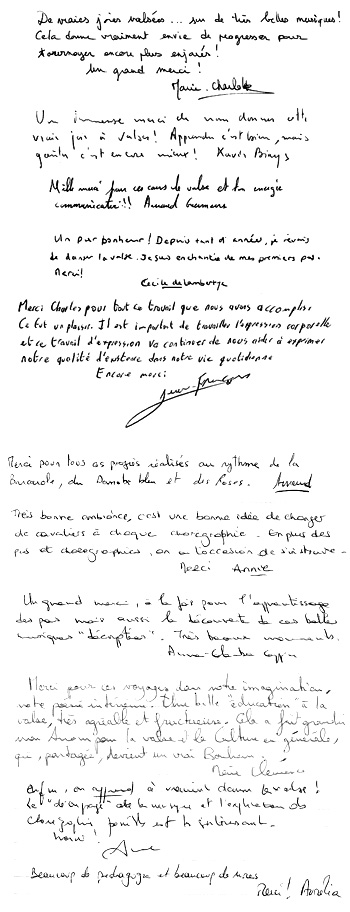 De vraies joies valsées... sur de très belles musiques!
Cela donne vraiment envie de progresser pour
tournoyer encore plus enjoués!
Un grand merci!
Marie-Charlotte
Un immense merci de nous donner cette
vraie joie à valser! Apprendre c'est bien, mais
goûter c'est encore mieux! Xavier
Mille mercis pour ces cours de valse et ton énergie
communicative!!! Arnaud
Un pur bonheur! Depuis tant d'années, je rêvais
de danser la valse. Je suis enchantée de mes premiers pas.
Merci!
Cécile de Lambertye
Merci Charles pour tout ce travail que nous avons accompli.
Ce fut un plaisir. Il est important de travailler l'expression corporelle
et ce travail d'expression va continuer de nous aider à exprimer
notre qualité d'existence dans notre vie quotidienne
Encore merci
Jean-François
Merci pour tous ces progrès réalisés au rythme de la
du Danube bleu et des Roses. Arnaud
Très bonne ambiance, c'est une bonne idée de changer
de cavaliers à chaque chorégraphie. En plus des
pas et chorégraphies, on a l'occasion de s'instruire -
Merci Annie
Un grand merci, à la fois pour l'apprentissage
des pas mais aussi la découverte de ces belles
musiques "décryptées". Très beaux moments.
Anne-Charlotte
Merci pour ces voyages dans notre imagination,
notre poésie intérieure. Une belle "éducation" à la
valse, très agréable et fructueuse. Cela a fait grandir
mon Amour pour la valse et la Culture en générale,
qui, partagée, devient un vrai Bonheur.
Marie Clémence
Enfin, on apprend à vraiment danser la valse!
Le "décryptage" de la musique et l'explication des
chorégraphies possibles est très intéressant.
Merci!
Anne
Beaucoup de pédagogie et beaucoup de rires
Merci! Aurélia